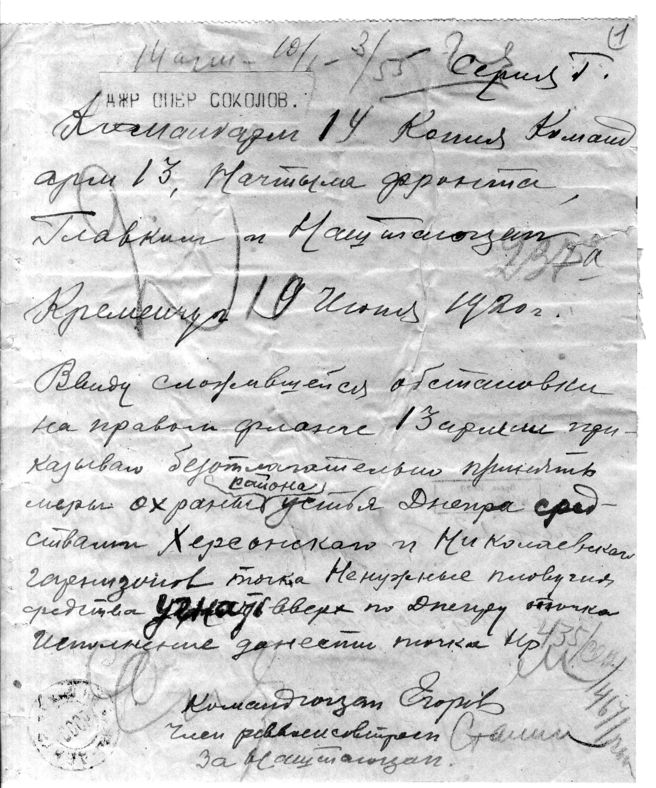 1
14 арм
Серия Г.
ДЖР ОПЕР СОКОЛОВ.
Командарм 14 Копия Команд
арм 13, Начтыла фронта,
Главком и Наштаюгзап
Кременчуг 10 Июня 1920 г.
Ввиду сложившейся обстановки
на правом фланге 13 армии при-
казываю безотлагательно принять
меры охраны района устья Днепра сред-
ствами Херсонского и Николаевского
гарнизонов точка Ненужные пловучия
средства угнать вверх по Днепру точка
Исполнение донести точка Нр
435/сек
/4671/оп
Командюгзап Егоров
Член реввоенсовета Сталин
За Наштаюгзап.